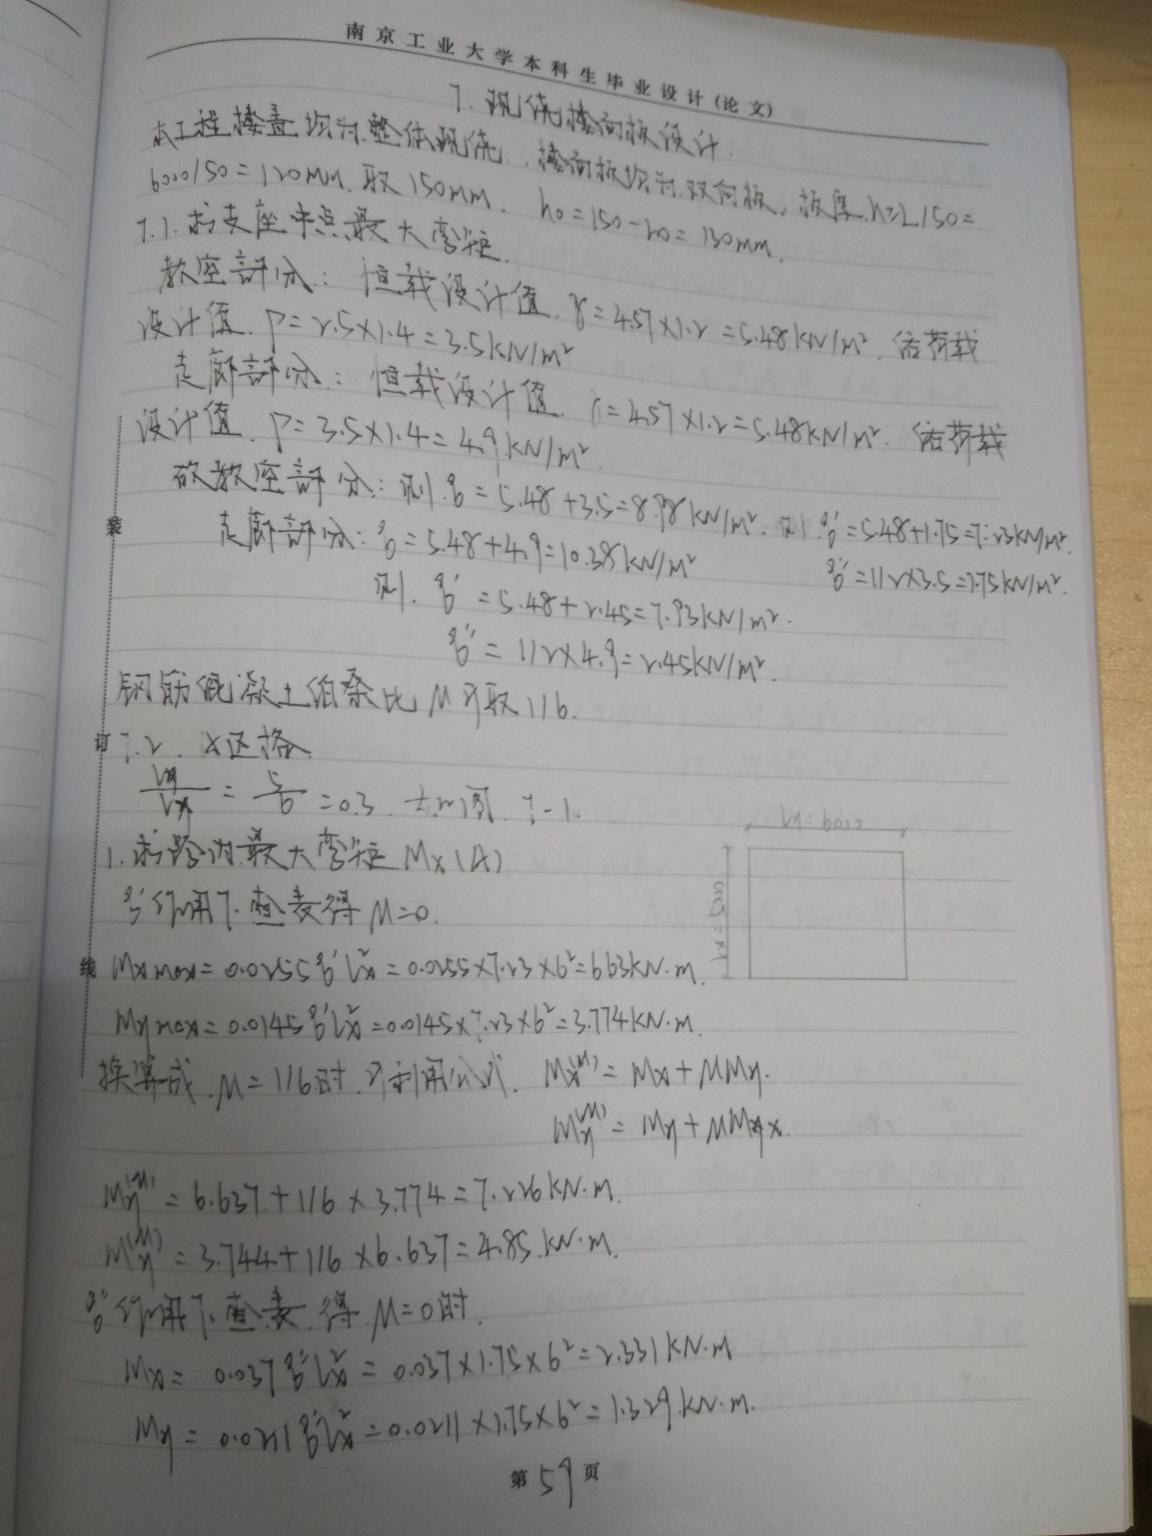 南京工业大学本科生毕业设计(论文)
7. 现浇楼面板设计.
本工程楼盖均为整体现浇,楼面板均为双向板,板厚h=L/50=
6000/50=120mm,取150mm. h0=150-20=130mm.
7.1.求支座中点最大弯矩.
教室部分:恒载设计值. g=4.57×1.2=5.48kN/m². 活荷载
设计值. P=2.5×1.4=3.5kN/m²
走廊部分:恒载设计值. g=4.57×1.2=5.48kN/m². 活荷载
设计值. P=3.5×1.4=4.9kN/m².
故教室部分:则.q=5.48+3.5=8.98kN/m². 则.q'=5.48+1.75=7.23kN/m².
走廊部分:q=5.48+4.9=10.38kN/m² q''=1/2×3.5=1.75kN/m².
则. q'=5.48+2.45=7.93kN/m².
q''=1/2×4.9=2.45kN/m².
钢筋混凝土泊桑比μ可取1/6.
7.2. A区格
ly/lx=5/6=0.3. 7-1.
ly=6000
1.求跨内最大弯矩Mx(A)
q'作用下.查表得μ=0.
Mxmax=0.0255q'lx²=0.0255×7.23×6²=6.63kN·m.
Mymax=0.0145q'lx²=0.0145×7.23×6²=3.774kN·m.
换算成.μ=1/6时.可利用公式. Mx(μ)=Mx+μMy.
My(μ)=My+μMx.
My(μ)=6.637+1/6×3.774=7.226kN·m.
My(μ)=3.744+1/6×6.637=4.85kN·m.
q''作用下.查表.得.μ=0时.
Mx=0.037q''lx²=0.037×1.75×6²=2.331kN·m
My=0.0211q''lx²=0.0211×1.75×6²=1.329kN·m.
第59页
装
订
线